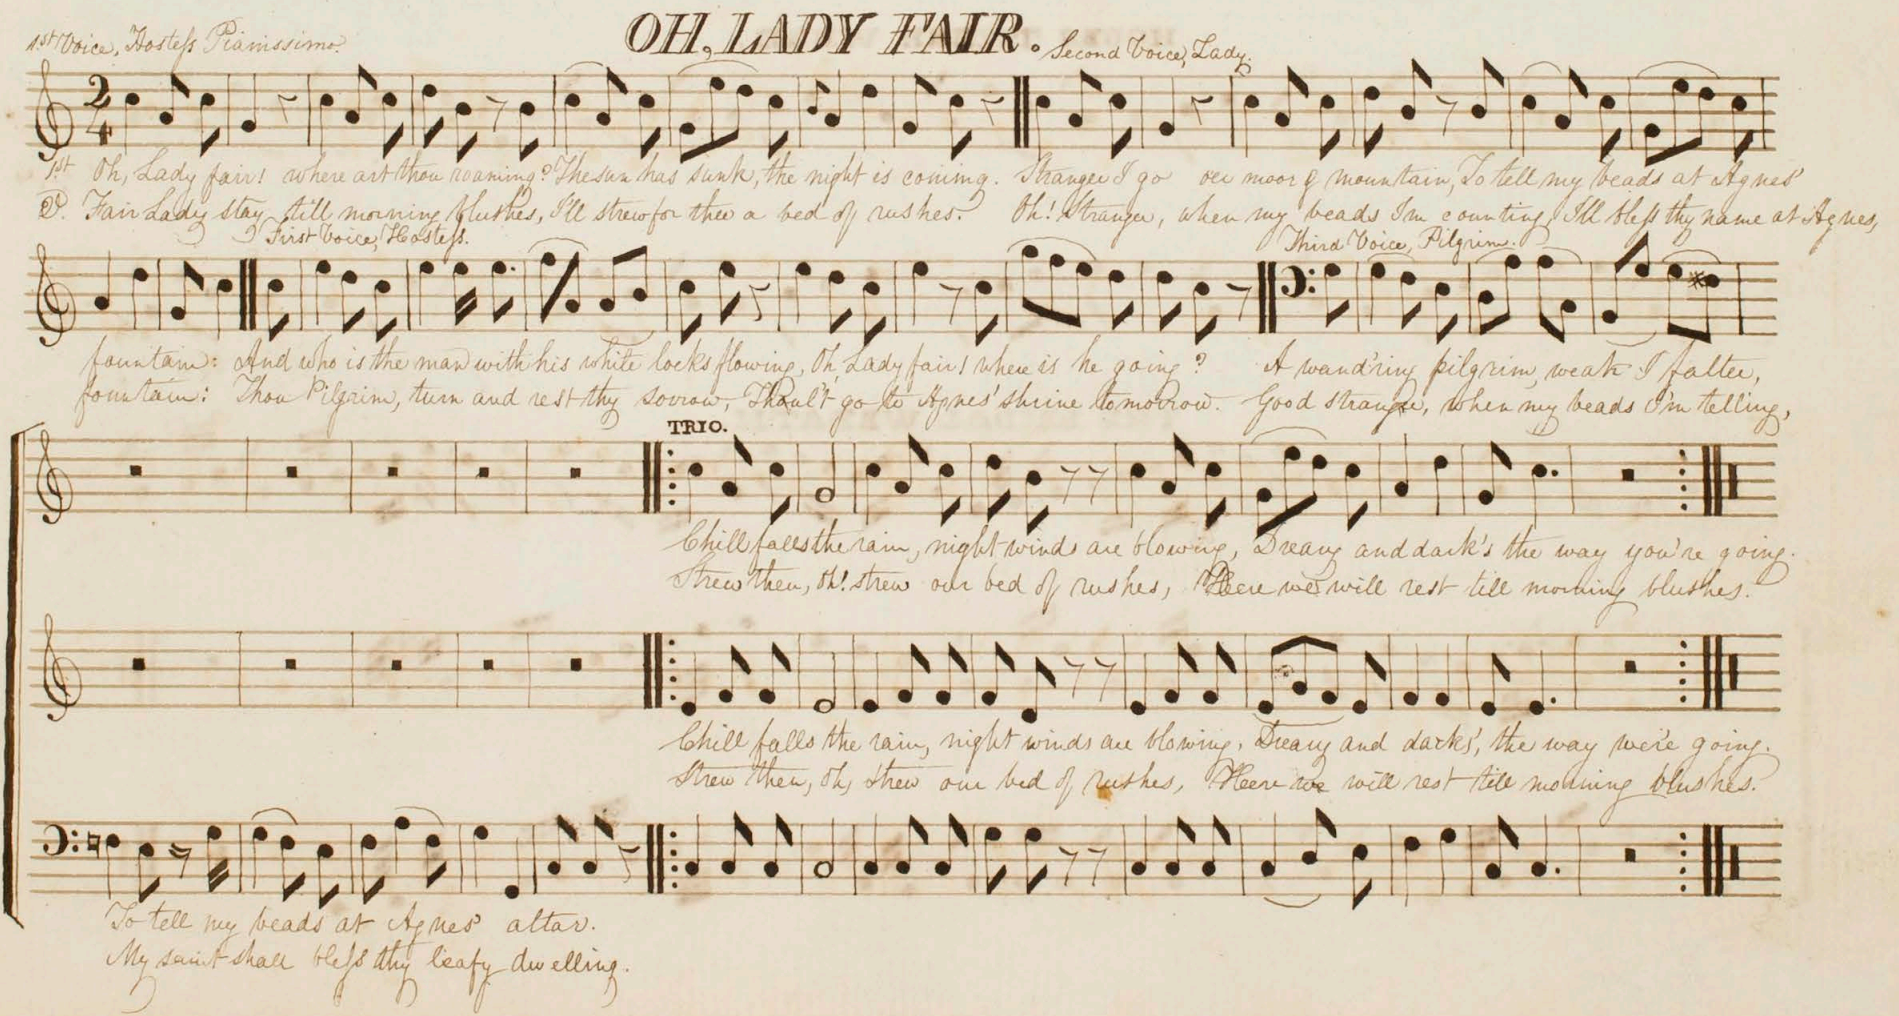 OH, LADY FAIR.
1st Voice, Hostess Pianissimo.
Second Voice, Lady.
2/4
1st Oh, Lady fair! where art thou roaming? The sun has sunk, the night is coming. Stranger I go oer moor & mountain, To tell my beads at Agnes'
2. Fair Lady stay till morning blushes, I'll strew for thee a bed of rushes. Oh! Stranger, when my beads I'm counting I'll bless thy name at Agnes,
First Voice, Hostess.
Third Voice, Pilgrim.
fountain: And who is the man with his white locks flowing, Oh, Lady fair! where is he going? A wand'ring pilgrim, weak I falter,
fountain: Thou Pilgrim, turn and rest thy sorrow, Thoul't go to Agnes' shrine tomorrow. Good stranger, when my beads I'm telling,
TRIO.
Chill falls the rain, night winds are blowing, Dreary and dark's the way you're going.
Strew then, oh! strew our bed of rushes, Here we will rest till morning blushes.
Chill falls the rain, night winds are blowing, Dreary and darks', the way we're going.
Strew then, oh, strew our bed of rushes, Here we will rest till morning blushes.
To tell my beads at Agnes' altar.
My saint shall bless thy leafy dwelling.